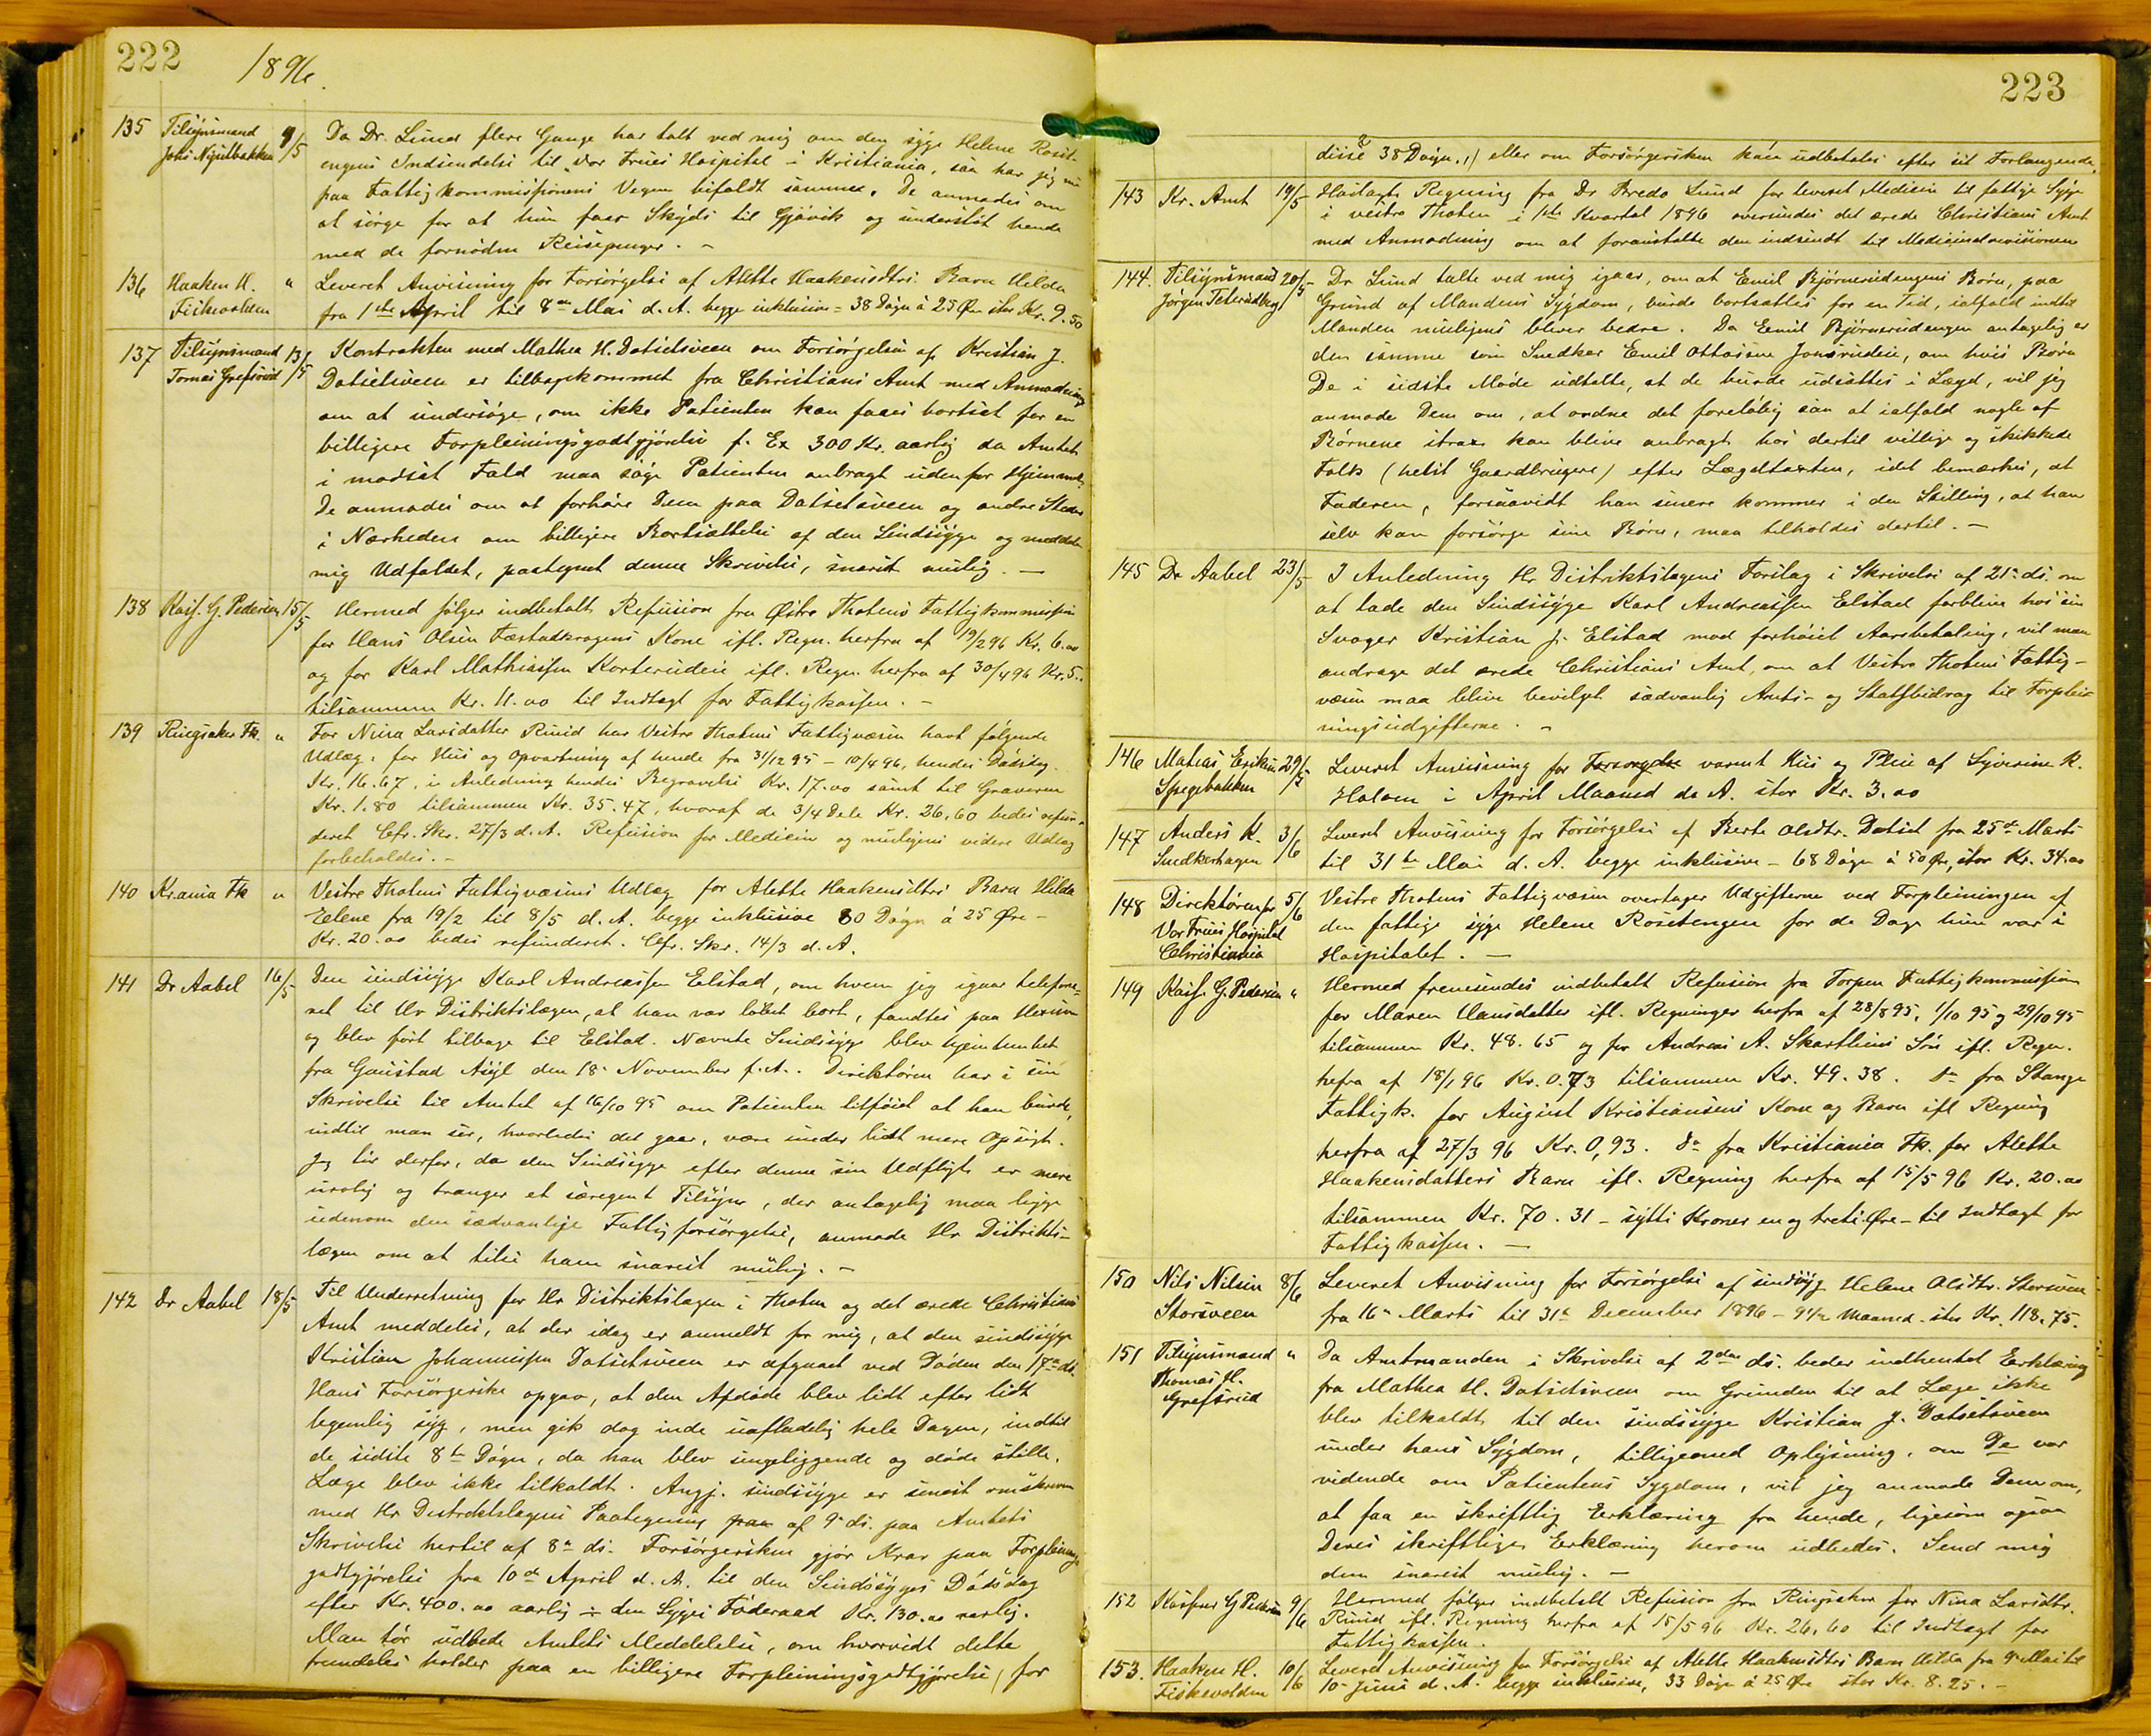 222
1896.
135 Tilsynsmand 9/5 Da Dr. Lund flere Gange har talt ved mig om den syge Helene Rosit-
Johs Nysetbakken engens Indsendelse til Vor Frues Hospital i Kristiania, saa har jeg nu
paa Fattigkommissionens Vegne bifaldt samme. De anmodes om
at sørge for at hun faar Skyds til Gjøvik og understøt hende
med de fornødne Reisepenger. -
136 Haaken H. " Leveret Anvisning for Forsørgelse af Alette Haakensdtrs. Barn Hilda
Fiskevolden fra 1ste April til 8de Mai d. A. begge inklusive = 38 Døgn à 25 Øre stor Kr. 9.50
137 Tilsynsmand 13/5 Kontrakten med Mathea H. Dotsetsveen om Forsørgelsen af Kristian J.
Tomas Grefsrud Dotsetsveen er tilbagekommet fra Christians Amt med Anmodning
om at undersøge, om ikke Patienten kan faaes bortsat for en
billigere Forpleiningsgodtgjørelse f. Ex 300 Kr. aarlig da Amtet
i modsat Fald maa søge Patienten anbragt udenfor Hjemmet.
De anmodes om at forhøre Dem paa Dotsetsveen og andre Steder
i Nærheden om billigere Bortsættelse af den Sindssyge og meddele
mig Udfaldet, paategnet denne Skrivelse, snarest mulig. -
138 Kasf. G. Pedersen 15/5 Hermed følger indbetalt Refusion fra Østre Thotens Fattigkommission
for Hans Olsen Fæstadkragens Kone ifl. Regn. herfra af 19/2 96 Kr. 6.00
og for Karl Mathiassen Korterudeie ifl. Regn. herfra af 30/4 96 Kr. 5..
tilsammen Kr. 11.00 til Indtægt for Fattigkassen. -
139 Ringsaker Fk. " For Nina Larsdatter Ruud har Vestre Thotens Fattigvæsen havt følgende
Udlæg: for Hus og Opvartning af hende fra 31/12 95 - 10/4 96, hendes Dødsdag
Kr. 16.67, i Anledning hendes Begravelse Kr. 17.00 samt til Graveren
Kr. 1.80 tilsammen Kr. 35.47, hvoraf de 3/4 Dele Kr. 26,60 bedes refun-
deret Cfr. Skr. 27/3 d. A. Refusion for Medicin og muligens videre Udlæg
forbeholdes. -
140 Kr.ania Fk " Vestre Thotens Fattigvæsens Udlæg for Alette Haakensdtrs Barn Hilda
Helene fra 19/2 til 8/5 d. A. begge inklusive 80 Døgn à 25 Øre -
Kr. 20.00 bedes refunderet. Cfr. Skr. 14/3 d. A.
141 Dr Aabel 16/5 Den sindssyge Karl Andreassen Elstad, om hvem jeg igaar telefone-
ret til Hr Distriktslægen, at han var løbet bort, fandtes paa
og blev ført tilbage til Elstad. Nævnte Sindssyge blev hjemhentet
fra Gaustad Asyl den 18. November f. A. Direktøren har i sin
Skrivelse til Amtet af 16/10 95 om Patienten tilføiet at han burde,
indtil man ser, hvorledes det gaar, være under lidt mere Opsigt.
Jeg tør derfor, da den Sindssyge efter denne sin Udflugt er mere
urolig og trænger et særegent Tilsyn, der antagelig maa ligge
udenom den sædvanlige Fattigforsørgelse, anmode Hr Distrikts-
lægen om at tilse ham snarest mulig. -
142 Dr Aabel 18/5 Til Underretning for Hr Distriktslægen i Thoten og det ærede Christians
Amt meddeles, at der idag er anmeldt for mig, at den sindssyge
Kristian Johannessen Dotsetsveen er afgaaet ved Døden den 17de ds.
Hans Forsørgerske opgav, at den Afdøde blev lidt efter lidt
legemlig syg, men gik dog inde uafladelig hele Dagen, indtil
de sidste 8te Døgn, da han blev sengeliggende og døde stille.
Læge blev ikke tilkaldt. Angj. sindssyge er senest omskreven
med Hr Distriktslægens Paategning paa af 9. ds. paa Amtets
Skrivelse hertil af 8. ds. Forsørgersken gjør Krav paa Forpleinings-
godtgjørelse fra 10de April d. A. til den Sindssyges Dødsdag
efter Kr. 400.00 aarlig ÷ den Syges Føderaad Kr. 130.00 aarlig.
Man tør udbede Amtets Meddelelse, om hvorvidt dette
fremdeles holder paa en billigere Forpleiningsgodtgjørelse (for
223
disse 38 Døgn,) eller om Forsørgersken kan udbetales efter sit Forlangende.
143 Kr. Amt 19/5 Heilagte Regning fra Dr Bredo Lund for leveret Medicin til fattige Syge
i vestre Thoten i 1ste Kvartal 1896 oversendes det ærede Christians Amt
med Anmodning om at foranstalte den indsendt til Medicinalrevisionen
144. Tilsynsmand 20/5 Dr Lund talte ved mig igaar, om at Emil Bjørnerudengens Børn, paa
Jørgen Teterudberg Grund af Mandens Sygdom, burde bortsættes for en Tid, ialfald indtil
Manden muligens bliver bedre. Da Emil Bjørnerudengen antagelig er
den samme som Snedker Emil Ottosen Jonsrudeie, om hvis Børn
De i sidste Møde udtalte, at de burde udsættes i Lægd, vil jeg
anmode Dem om, at ordne det foreløbig saa at ialfald nogle af
Børnene strax kan blive anbragt hos dertil villige og skikkede
Folk (helst Gaardbrugere) efter Lægdtaxten, idet bemærkes, at
Faderen, forsaavidt han senere kommer i den Stilling, at han
selv kan forsørge sine Børn, maa tilholdes dertil. -
145 Dr Aabel 23/5 I Anledning Hr Distriktslægens Forslag i Skrivelse af 21. ds. om
at lade den Sindssyge Karl Andreassen Elstad forblive hos sin
Svoger Kristian J. Elstad mod forhøiet Aarsbetaling, vil man
andrage det ærede Christians Amt, om at Vestre Thotens Fattig-
væsen maa blive bevilget sædvanlig Amts- og Statsbidrag til Forplei-
ningsudgifterne. -
146 Matias Eriksen 29/5 Leveret Anvisning for Forsørgelse varmt Hus og Pleie af Syverine K.
Spegebakken Halsen i April Maaned d. A. stor Kr. 3.00
147 Anders K. 3/6 Leveret Anvisning for Forsørgelse af Berte Olsdtr. Dotset fra 25de Marts
Snedkerhagen til 31te Mai d. A. begge inklusive - 68 Døgn à 50 Øre, stor Kr. 34.00
148 Direktøren for 5/6 Vestre Thotens Fattigvæsen overtager Udgifterne ved Forpleiningen af
Vor Frues Hospital den fattige syge Helene Rositengen for de Dage hun var i
Christiania Hospitalet. -
149 Kasf. G. Pedersen " Hermed fremsendes indbetalt Refusion fra Torpen Fattigkommission
for Maren Hansdatter ifl. Regninger herfra af 28/8 95, 1/10 95 og 29/10 95
tilsammen Kr. 48.65 og for Andreas A. Skartliens Søn ifl. Regn.
hefra af 18/1 96 Kr. 0.73 tilsammen Kr. 49.38. do fra Stange
Fattigk. for August Kristiansens Kone og Barn ifl Regning
herfra af 27/3 96 Kr. 0,93. do fra Kristiania Fk. for Alette
Haakensdatters Barn ifl. Regning herfra af 15/5 96 Kr. 20.00
tilsammen Kr. 70.31 - sytti Kroner en og treti Øre - til Indtægt for
Fattigkassen. -
150 Nils Nilsen 8/6 Leveret Anvisning for Forsørgelse af sindssyg Helene Olsdtr. Storsveen
Storsveen fra 16. Marts til 31te December 1896 - 9 1/2 Maaned. stor Kr. 118.75.
151 Tilsynsmand " Da Amtmanden i Skrivelse af 2den ds. beder indhentet Erklæring
Thomas H. fra Mathea H. Dotsetsveen om Grunden til at Læge ikke
Grefsrud blev tilkaldt til den sindssyge Kristian J. Dotsetsveen
under hans Sygdom, tilligemed Oplysning, om De var
vidende om Patientens Sygdom, vil jeg anmode Dem om,
at faa en skriftlig Erklæring fra hende, ligesom ogsaa
Deres skriftlige Erklæring herom udbedes. Send mig
dem snarest mulig. -
152 Kasserer G Pedersen 9/6 Hermed følger indbetalt Refusion fra Ringsaker for Nina Larsdtr.
Ruud ifl. Regning herfra af 15/5 96 Kr. 26,60 til Indtægt for
Fattigkassen.
153. Haaken H. 10/6 Leveret Anvisning for Forsørgelse af Alette Haakensdtrs Barn Hilda fra 9. Mai til
Fiskevolden 10. Juni d. A. begge inklusive, 33 Døgn à 25 Øre stor Kr. 8.25. -